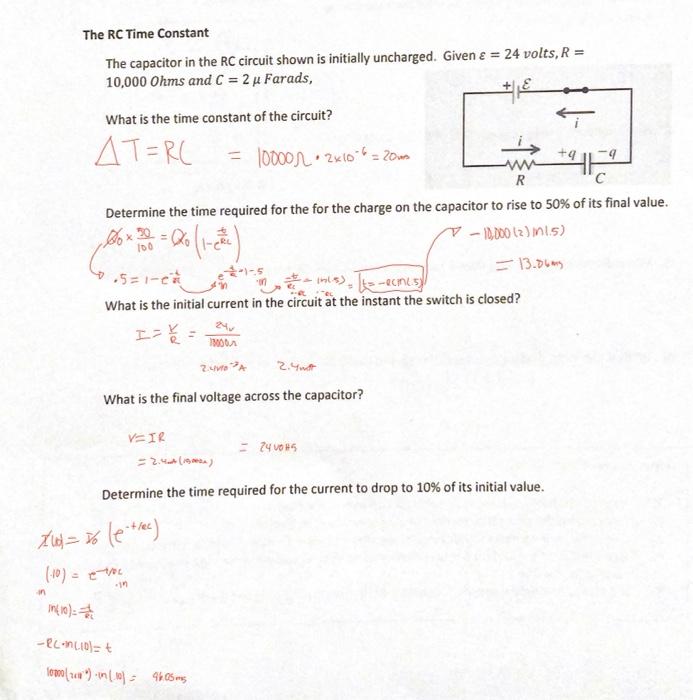 The RC Time Constant
The capacitor in the RC circuit shown is initially uncharged. Given ε = 24 volts, R =
10,000 Ohms and C = 2 μ Farads,
+ ε
i
i
+q -q
R
C
What is the time constant of the circuit?
ΔT=RC = 10000Ω · 2x10⁻⁶ = 20ms
Determine the time required for the for the charge on the capacitor to rise to 50% of its final value.
Q₀ x 50/100 = Q₀ (1-e^t/RC)
-10,000(2)ln(.5)
= 13.86ms
.5 = 1-e^-t/RC
t=-RC ln(.5)
What is the initial current in the circuit at the instant the switch is closed?
I = V/R = 24v/10000Ω
2.4x10⁻³A 2.4mA
What is the final voltage across the capacitor?
V=IR
= 24 volts
= 2.4mA(10000Ω)
Determine the time required for the current to drop to 10% of its initial value.
(e^-t/RC)
(.10) = e^-t/RC
ln ·ln
ln(.10) = -t/RC
-RC·ln(.10)=t
10000(2x10⁻⁶)·ln(.10) = 46.05ms